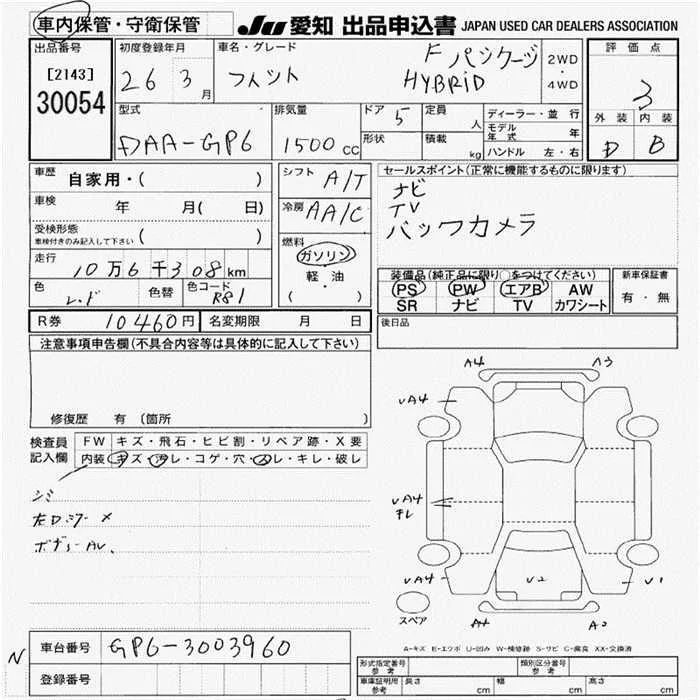 車内保管・守衛保管 JU 愛知 出品申込書 JAPAN USED CAR DEALERS ASSOCIATION
出品番号 [2143] 30054
初度登録年月 26 3月
車名・グレード フィット Fパッケージ HYBRID
2WD・4WD
評価点 3
外装 内装
D B
型式 DAA-GP6
排気量 1500cc
ドア 5 定員 人
形状 積載 kg
ディーラー・並行
モデル年式 年
ハンドル 左・右
車歴 自家用・( )
車検 年 月( 日)
受検形態 車検付きのみ記入して下さい ( )
走行 10万6千308km
色 レッド 色替 色コード R81
シフト A/T
冷房 AA/C
燃料 ガソリン・軽・油 ( )
セールスポイント(正常に機能するものに限ります)
ナビ
TV
バックカメラ
装備品(純正品に限り○をつけてください) 新車保証書
PS PW エアB AW 有・無
SR ナビ TV カワシート
R券 10460円 名変期限 月 日
後日品
注意事項申告欄(不具合内容等は具体的に記入して下さい)
修復歴 有 (箇所 )
検査員記入欄 FW キズ・飛石・ヒビ割・リペア跡・X要
内装 キズ・汚レ・コゲ・穴・スレ・キレ・破レ
シミ
左Dミラー X
ボデー AV.
A4 A3
UA4
UA4
キレ
UA4 U2 U1
スペア
A-キズ E-エクボ U-凹み W-補修跡 S-サビ C-腐食 XX-交換済
N 車台番号 GP6-3003960
登録番号
形式指定番号 参考 類別区分番号 参考
車庫証明用 参考 長さ cm 幅 cm 高さ cm